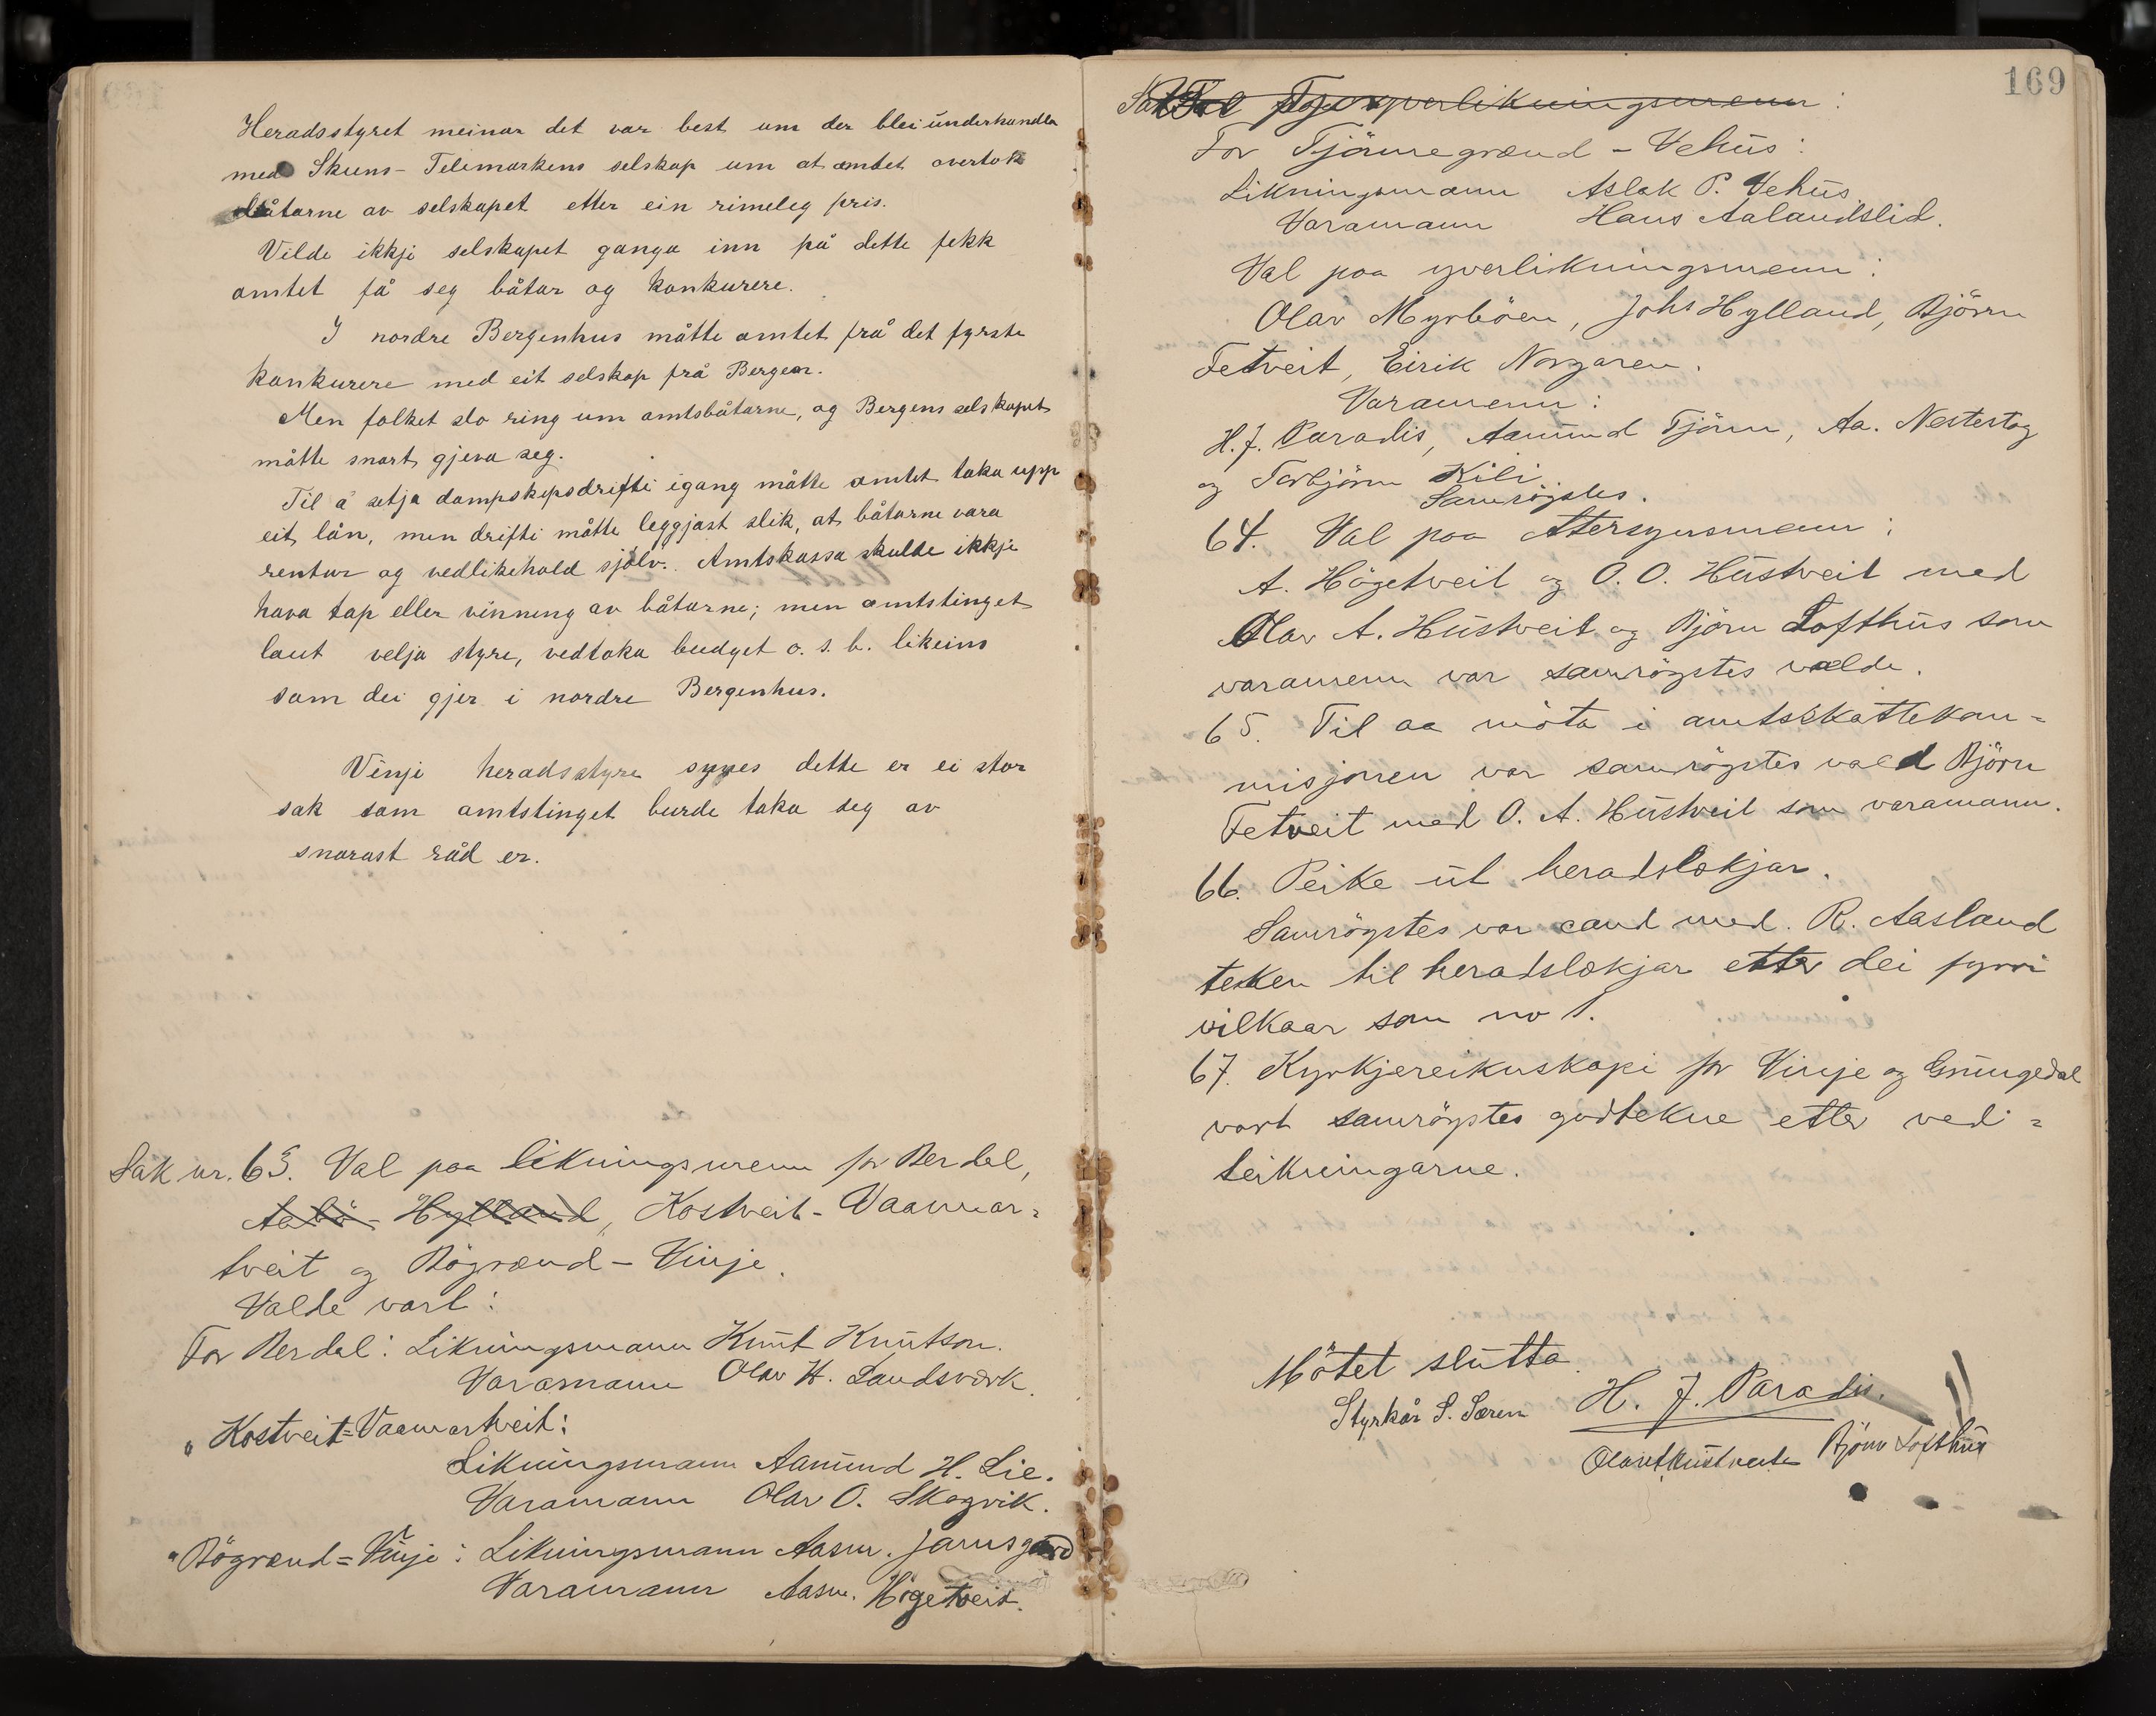 Heradsstyret meinar det var best um der blei underhandla
med Skiens-Telemarkens selskap um at amtet overtok
båtarne av selskapet etter ein rimeleg pris.
Vilde ikkji selskapet ganga inn på dette fekk
amtet få seg båtar og konkurere.
I nordre Bergenhus måtte amtet frå det fyrste
konkurere med eit selskap frå Bergen.
Men folket slo ring um amtsbåtarne, og Bergens selskapet
måtte snart gjeva seg.
Til å setja dampskipsdrifti igang måtte amtet taka upp
eit lån, men drifti måtte leggjast slik, at båtarne vara
rentur og vedlikehald sjølv. Amtskassa skulde ikkje
hava tap eller vinning av båtarne; men amtstinget
laut velja styre, vedtaka budget o. s. b. likeins
som dei gjer i nordre Bergenhus.
Vinji heradsstyre synes dette er ei stor
sak som amtstinget burde taka seg av
snarast råd er.
Sak nr. 63. Val paa likningsmenn for Berdal,
Aabö-Hylland, Kostveit-Vaamar=
tveit og Bögrænd-Vinje.
Valde vart:
For Berdal: Likningsmann Knut Knutson.
Varamann Olav K. Landsverk.
" Kostveit=Vaamartveit:
Likningsmann Aamund H. Lie.
Varamann Olav O. Skogvik.
" Bögrænd=Vinje: Likningsmann Aasm. Jamsgard
Varamann Aasm. Högetveit.
169
For Tjönnegrænd-Vehus:
Likningsmann Aslak P. Vehus.
Varamann Hans Aalandslid.
Val paa yverlikningsmenn:
Olav Myrböen, Johs Hylland, Björn
Tetveit, Eirik Norgaren.
Varamenn:
H. J. Paradis, Aamund Tjönn, Aa. Nestestog
og Torbjörn Kili.
Samröystes.
64. Val paa Attersynsmenn:
A. Högetveit og O. O. Hustveit med
Olav A. Hustveit og Björn Lofthus som
varamenn var samröystes valde.
65. Til aa möta i amtsskattekom=
misjonen var samröystes vald Björn
Tetveit med O. A. Hustveit som varamann.
66. Peike ut heradslækjar.
Samröystes var cand med. R. Aasland
teken til heradslækjar etter dei fyrri
vilkaar som no
67. Kyrkjereikneskapi for Vinje og Grungedal
vart samröystes godtekne etter ved=
teikningarne.
Mötet slutta
Styrkår S. Særen H. J. Paradis.
Olav A Hustveit Björn Lofthus